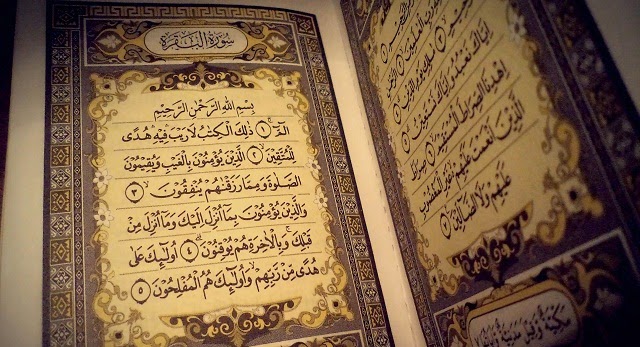 إِيَّاكَ نَعْبُدُ وَإِيَّاكَ نَسْتَعِينُ
اِهْدِنَا الصِّرَاطَ الْمُسْتَقِيمَ صِرَاطَ
الَّذِينَ أَنْعَمْتَ عَلَيْهِمْ غَيْرِ الْمَغْضُوبِ
عَلَيْهِمْ وَلَا الضَّالِّينَ ٧
مَكِّيَّةٌ وَقِيلَ مَدَنِيَّةٌ
سُورَةُ الْبَقَرَةِ
بِسْمِ اللّٰهِ الرَّحْمٰنِ الرَّحِيمِ
الٓمٓ ١ ذٰلِكَ الْكِتٰبُ لَا رَيْبَ فِيهِ هُدًى
لِلْمُتَّقِينَ ٢ الَّذِينَ يُؤْمِنُونَ بِالْغَيْبِ وَيُقِيمُونَ
الصَّلٰوةَ وَمِمَّا رَزَقْنٰهُمْ يُنْفِقُونَ ٣
وَالَّذِينَ يُؤْمِنُونَ بِمَآ أُنْزِلَ إِلَيْكَ وَمَآ أُنْزِلَ مِنْ
قَبْلِكَ وَبِالْاٰخِرَةِ هُمْ يُوقِنُونَ ٤ أُولٰٓئِكَ عَلٰى
هُدًى مِّنْ رَّبِّهِمْ وَأُولٰٓئِكَ هُمُ الْمُفْلِحُونَ ٥